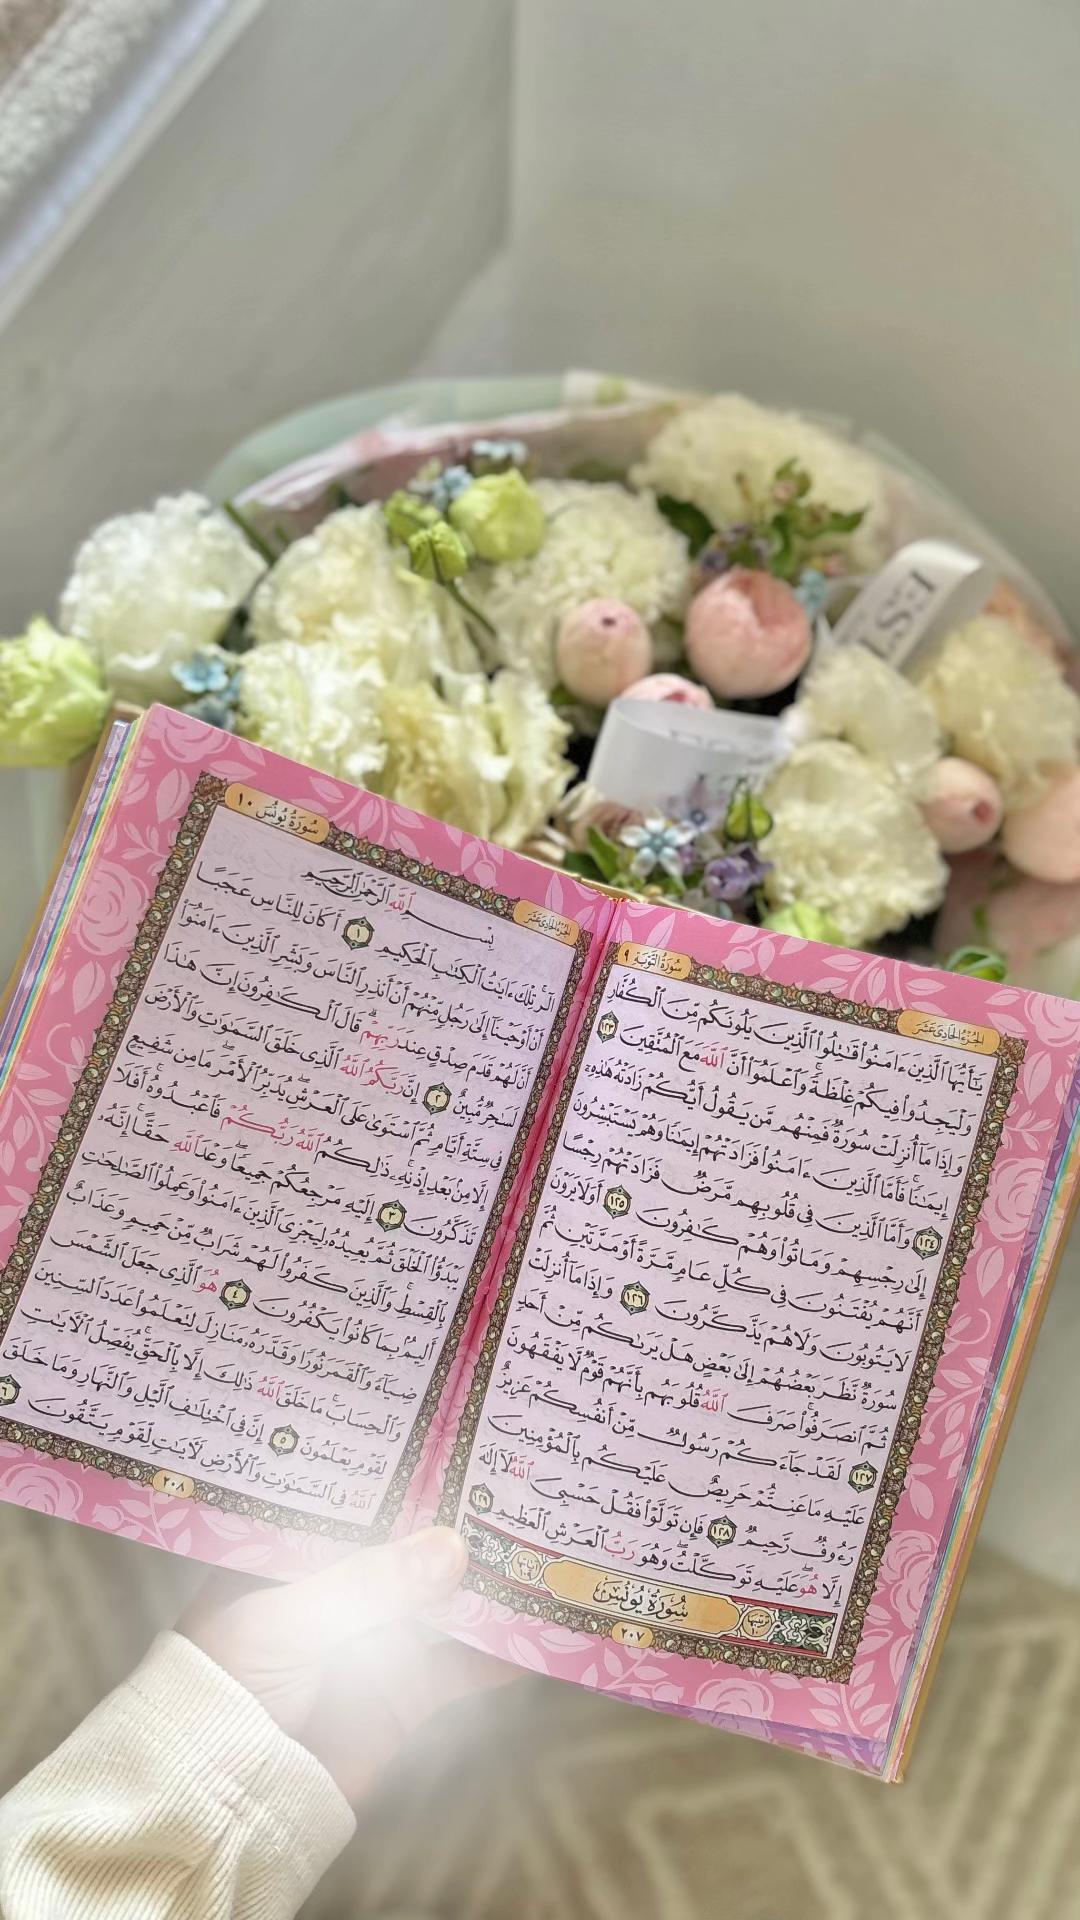 سُورَةُ التَّوْبَةِ ٩
الجُزْءُ الحَادِي عَشَرَ
يَٰٓأَيُّهَا ٱلَّذِينَ ءَامَنُوا۟ قَٰتِلُوا۟ ٱلَّذِينَ يَلُونَكُم مِّنَ ٱلْكُفَّارِ
وَلْيَجِدُوا۟ فِيكُمْ غِلْظَةً ۚ وَٱعْلَمُوٓا۟ أَنَّ ٱللَّهَ مَعَ ٱلْمُتَّقِينَ ١٢٣
وَإِذَا مَآ أُنزِلَتْ سُورَةٌ فَمِنْهُم مَّن يَقُولُ أَيُّكُمْ زَادَتْهُ هَٰذِهِۦٓ
إِيمَٰنًا ۚ فَأَمَّا ٱلَّذِينَ ءَامَنُوا۟ فَزَادَتْهُمْ إِيمَٰنًا وَهُمْ يَسْتَبْشِرُونَ
١٢٤ وَأَمَّا ٱلَّذِينَ فِى قُلُوبِهِم مَّرَضٌ فَزَادَتْهُمْ رِجْسًا
إِلَىٰ رِجْسِهِمْ وَمَاتُوا۟ وَهُمْ كَٰفِرُونَ ١٢٥ أَوَلَا يَرَوْنَ
أَنَّهُمْ يُفْتَنُونَ فِى كُلِّ عَامٍ مَّرَّةً أَوْ مَرَّتَيْنِ ثُمَّ
لَا يَتُوبُونَ وَلَا هُمْ يَذَّكَّرُونَ ١٢٦ وَإِذَا مَآ أُنزِلَتْ
سُورَةٌ نَّظَرَ بَعْضُهُمْ إِلَىٰ بَعْضٍ هَلْ يَرَىٰكُم مِّنْ أَحَدٍ
ثُمَّ ٱنصَرَفُوا۟ ۚ صَرَفَ ٱللَّهُ قُلُوبَهُم بِأَنَّهُمْ قَوْمٌ لَّا يَفْقَهُونَ
١٢٧ لَقَدْ جَآءَكُمْ رَسُولٌ مِّنْ أَنفُسِكُمْ عَزِيزٌ
عَلَيْهِ مَا عَنِتُّمْ حَرِيصٌ عَلَيْكُم بِٱلْمُؤْمِنِينَ
رَءُوفٌ رَّحِيمٌ ١٢٨ فَإِن تَوَلَّوْا۟ فَقُلْ حَسْبِىَ ٱللَّهُ لَآ إِلَٰهَ
إِلَّا هُوَ ۖ عَلَيْهِ تَوَكَّلْتُ ۖ وَهُوَ رَبُّ ٱلْعَرْشِ ٱلْعَظِيمِ ١٢٩
سُورَةُ يُونُسَ
٢٠٧
سُورَةُ يُونُسَ ١٠
الجُزْءُ الحَادِي عَشَرَ
بِسْمِ ٱللَّهِ ٱلرَّحْمَٰنِ ٱلرَّحِيمِ
الٓر ۚ تِلْكَ ءَايَٰتُ ٱلْكِتَٰبِ ٱلْحَكِيمِ ١ أَكَانَ لِلنَّاسِ عَجَبًا
أَنْ أَوْحَيْنَآ إِلَىٰ رَجُلٍ مِّنْهُمْ أَنْ أَنذِرِ ٱلنَّاسَ وَبَشِّرِ ٱلَّذِينَ ءَامَنُوٓا۟
أَنَّ لَهُمْ قَدَمَ صِدْقٍ عِندَ رَبِّهِمْ ۗ قَالَ ٱلْكَٰفِرُونَ إِنَّ هَٰذَا
لَسَٰحِرٌ مُّبِينٌ ٢ إِنَّ رَبَّكُمُ ٱللَّهُ ٱلَّذِى خَلَقَ ٱلسَّمَٰوَٰتِ وَٱلْأَرْضَ
فِى سِتَّةِ أَيَّامٍ ثُمَّ ٱسْتَوَىٰ عَلَى ٱلْعَرْشِ ۖ يُدَبِّرُ ٱلْأَمْرَ ۖ مَا مِن شَفِيعٍ
إِلَّا مِنۢ بَعْدِ إِذْنِهِۦ ۚ ذَٰلِكُمُ ٱللَّهُ رَبُّكُمْ فَٱعْبُدُوهُ ۚ أَفَلَا
تَذَكَّرُونَ ٣ إِلَيْهِ مَرْجِعُكُمْ جَمِيعًا ۖ وَعْدَ ٱللَّهِ حَقًّا ۚ إِنَّهُۥ
يَبْدَؤُا۟ ٱلْخَلْقَ ثُمَّ يُعِيدُهُۥ لِيَجْزِىَ ٱلَّذِينَ ءَامَنُوا۟ وَعَمِلُوا۟ ٱلصَّٰلِحَٰتِ
بِٱلْقِسْطِ ۚ وَٱلَّذِينَ كَفَرُوا۟ لَهُمْ شَرَابٌ مِّنْ حَمِيمٍ وَعَذَابٌ
أَلِيمٌۢ بِمَا كَانُوا۟ يَكْفُرُونَ ٤ هُوَ ٱلَّذِى جَعَلَ ٱلشَّمْسَ
ضِيَآءً وَٱلْقَمَرَ نُورًا وَقَدَّرَهُۥ مَنَازِلَ لِتَعْلَمُوا۟ عَدَدَ ٱلسِّنِينَ
وَٱلْحِسَابَ ۚ مَا خَلَقَ ٱللَّهُ ذَٰلِكَ إِلَّا بِٱلْحَقِّ ۚ يُفَصِّلُ ٱلْءَايَٰتِ
لِقَوْمٍ يَعْلَمُونَ ٥ إِنَّ فِى ٱخْتِلَٰفِ ٱلَّيْلِ وَٱلنَّهَارِ وَمَا خَلَقَ
ٱللَّهُ فِى ٱلسَّمَٰوَٰتِ وَٱلْأَرْضِ لَءَايَٰتٍ لِّقَوْمٍ يَتَّقُونَ ٦
٢٠٨